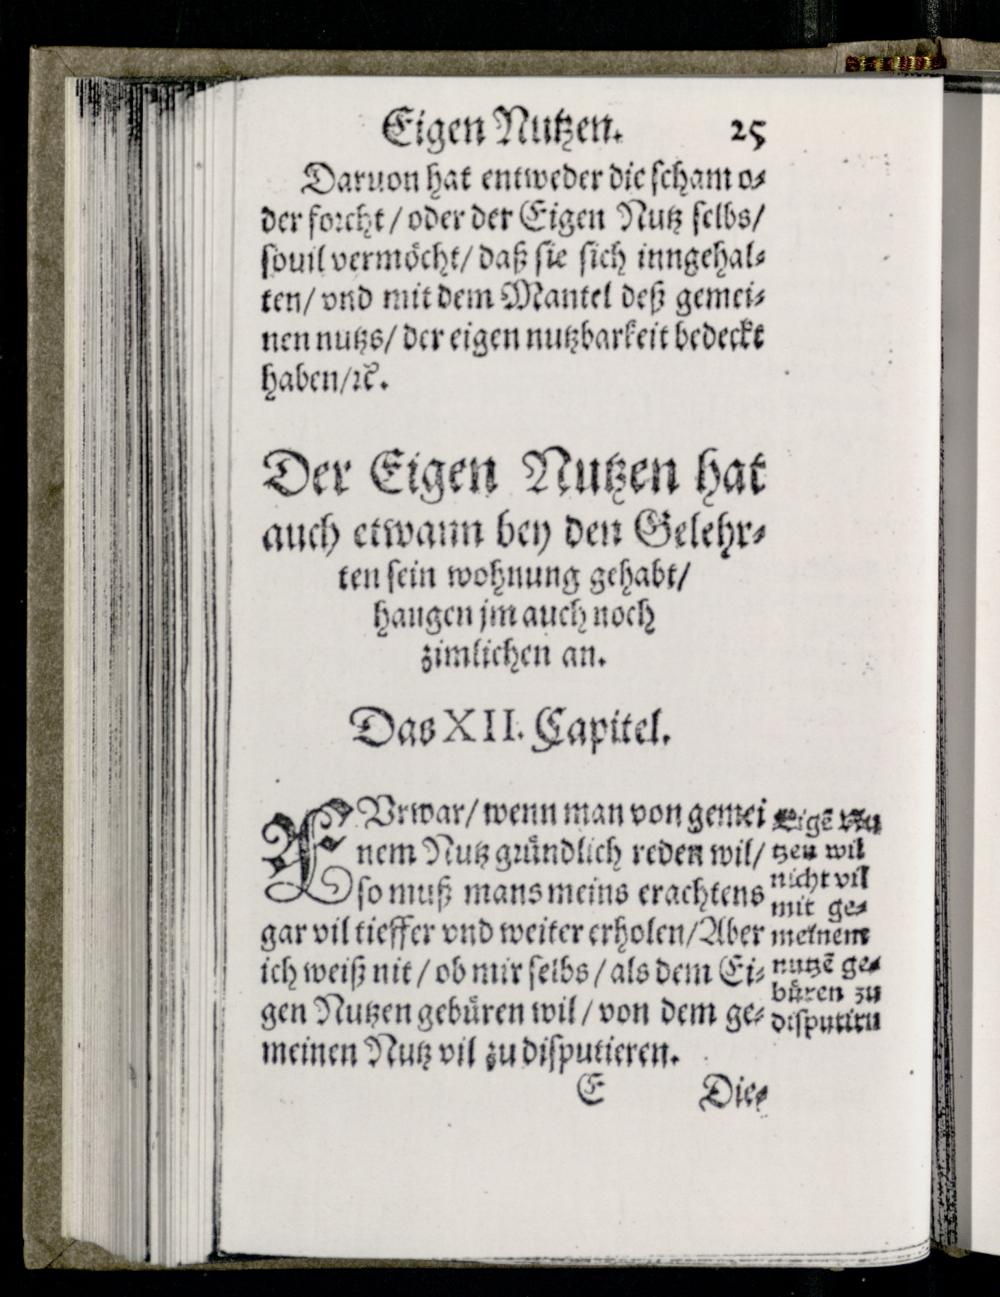 Eigen Nutzen. 25
Daruon hat entweder die scham o⸗
der forcht / oder der Eigen Nutz selbs /
souil vermöcht / daß sie sich inngehal⸗
ten / vnd mit dem Mantel deß gemei⸗
nen nutzs / der eigen nutzbarkeit bedeckt
haben / ꝛc.
Der Eigen Nutzen hat
auch etwann bey den Gelehr⸗
ten sein wohnung gehabt /
hangen jm auch noch
zimlichen an.
Das XII. Capitel.
FVrwar / wenn man von gemei
nem Nutz gründlich reden wil /
so muß mans meins erachtens
gar vil tieffer vnd weiter erholen / Aber
ich weiß nit / ob mir selbs / als dem Ei⸗
gen Nutzen gebüren wil / von dem ge⸗
meinen Nutz vil zu disputieren.
Eigē Nu
tzen wil
nicht vil
mit ge⸗
meinem
nutzē ge⸗
büren zu
disputirn
E Die⸗